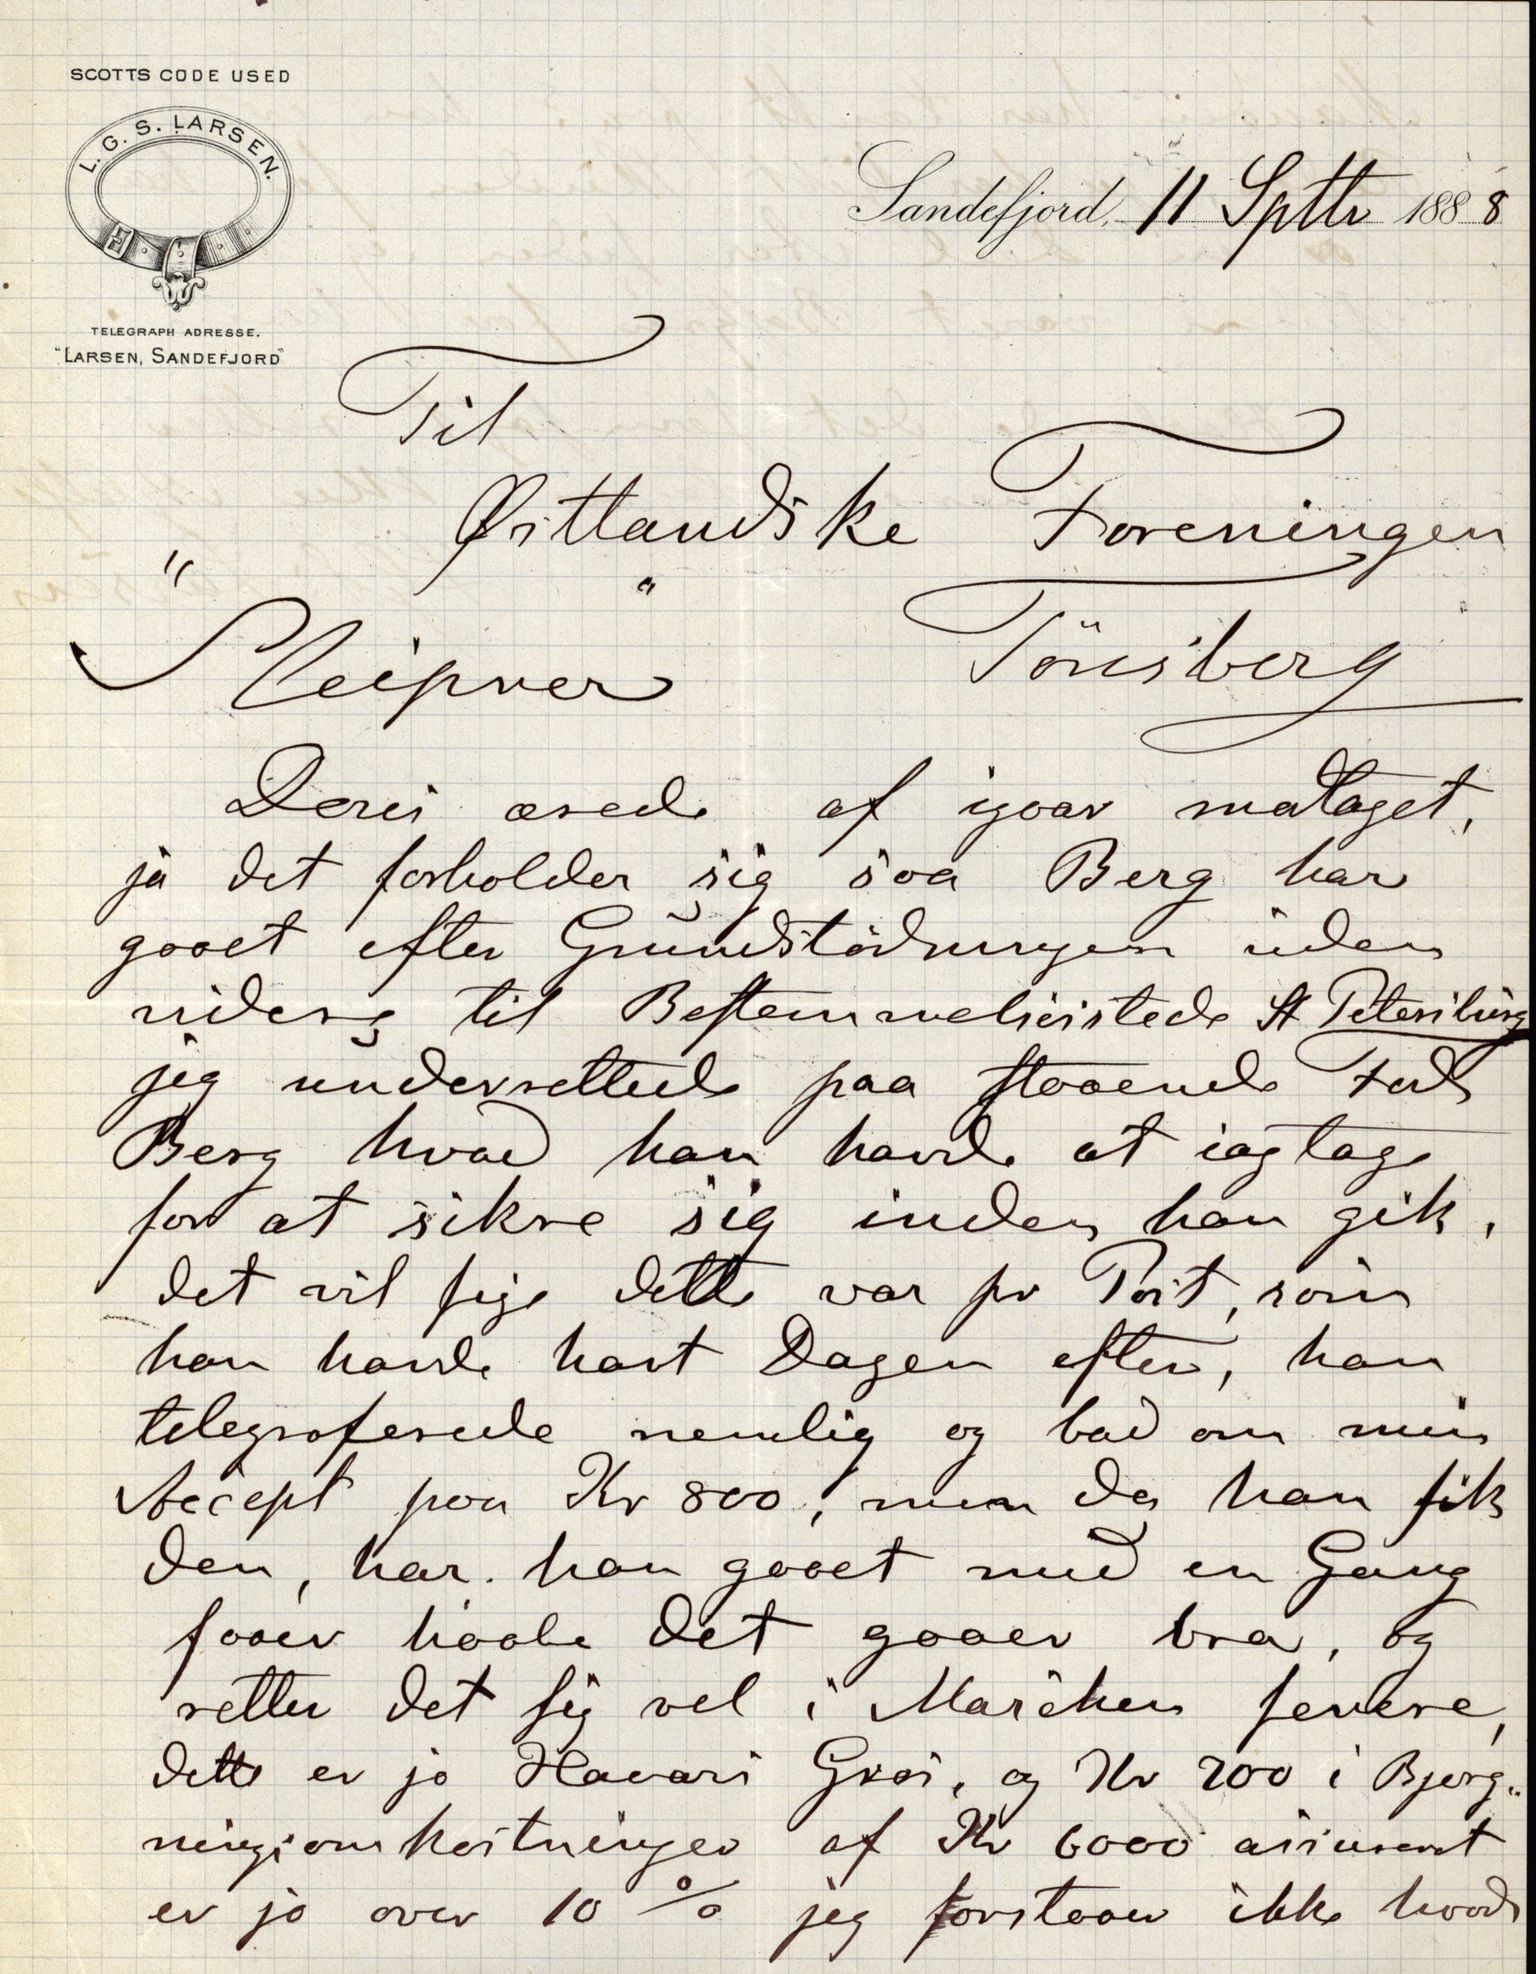 SCOTTS CODE USED
L. G. S. LARSEN.
TELEGRAPH ADRESSE.
"LARSEN, SANDEFJORD"
Sandefjord, 11 Sptbr 1888
Til
Østlandske Foreningen
Tönsberg
"Sleipner"
Deres ærede af igaar modtaget,
ja det forholder sig saa Berg har
gaaet efter Grundstödningen uden
videre til Bestemmelsesstede St Petersburg
jeg underrettede paa staaende Fod
Berg hvad han havde at iagtage
for at sikre sig inden han gik,
det vil sige dette var pr Post, som
han havde havt Dagen efter, han
telegraferede nemlig og bad om min
Accept paa Kr 800, men da han fik
den, har han gaaet med en Gang
faaer haabe det gaaer bra, og
retter det sig vel i Marchen senere,
dette er jo Havari Gros, og Kr 700 i Bjerg-
ningsomkostninger af Kr 6000 assureret
er jo over 10 % jeg forstaaer ikke hvad